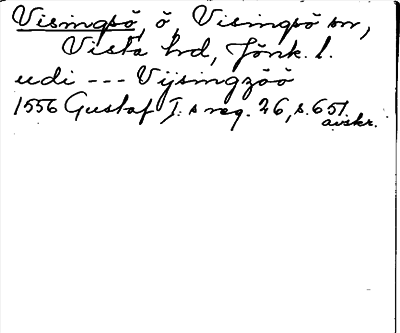 Visingsö, ö, Visingsö sn,
Vista hrd, Jönk. l.
udi --- Vijsingzöö
1556 Gustaf I:s reg. 26, s. 651.
avskr.